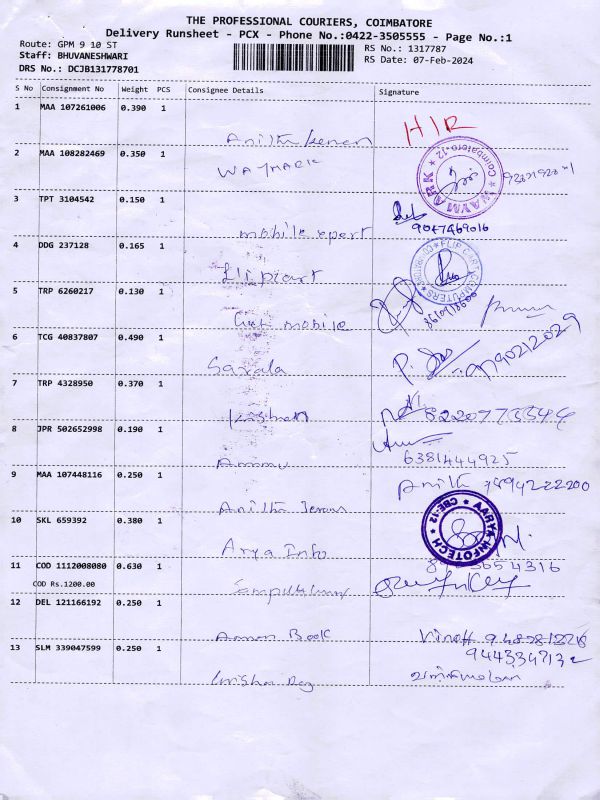 THE PROFESSIONAL COURIERS, COIMBATORE
Delivery Runsheet - PCX - Phone No.:0422-3505555 - Page No.:1
Route: GPM 9 10 ST
RS No.: 1317787
Staff: BHUVANESHWARI
RS Date: 07-Feb-2024
DRS No.: DCJB131778701
S No Consignment No Weight PCS Consignee Details Signature
1 MAA 107261006 0.390 1
HIR
2 MAA 108282469 0.350 1
WAYMARK
WAYMARK ★ Coimbatore-12 ★
3 TPT 3104542 0.150 1
mobile xpert
9047469016
4 DDG 237128 0.165 1
Flipcart
5 TRP 6260217 0.130 1
mobile
6 TCG 40837807 0.490 1
Sarala
7 TRP 4328950 0.370 1
8220773344
8 JPR 502652998 0.190 1
Ammu
6381444925
9 MAA 107448116 0.250 1
Anith
Anith 9894222200
10 SKL 659392 0.380 1
Arya Info
★ AARYA INFOTECH ★ CBE-12
11 COD 1112008080 0.630 1
COD Rs.1200.00
12 DEL 121166192 0.250 1
Book
Vinoth
13 SLM 339047599 0.250 1